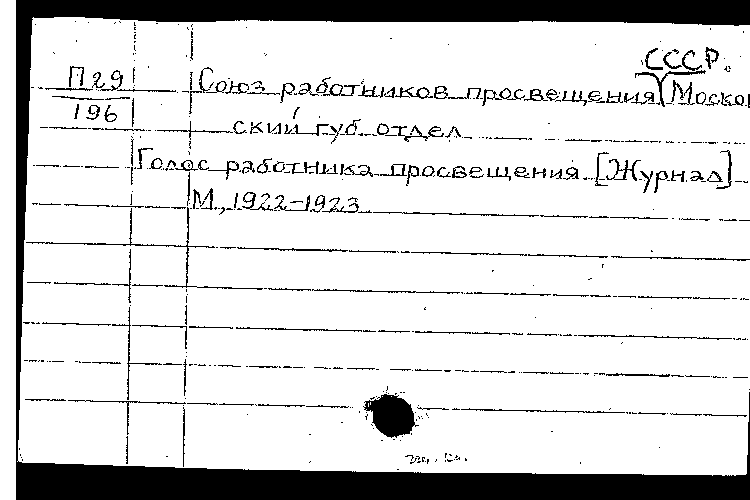 СССР.
П29 Союз работников просвещения Москов
196 ский губ. отдел
Голос работника просвещения. [Журнал]
М., 1922-1923.